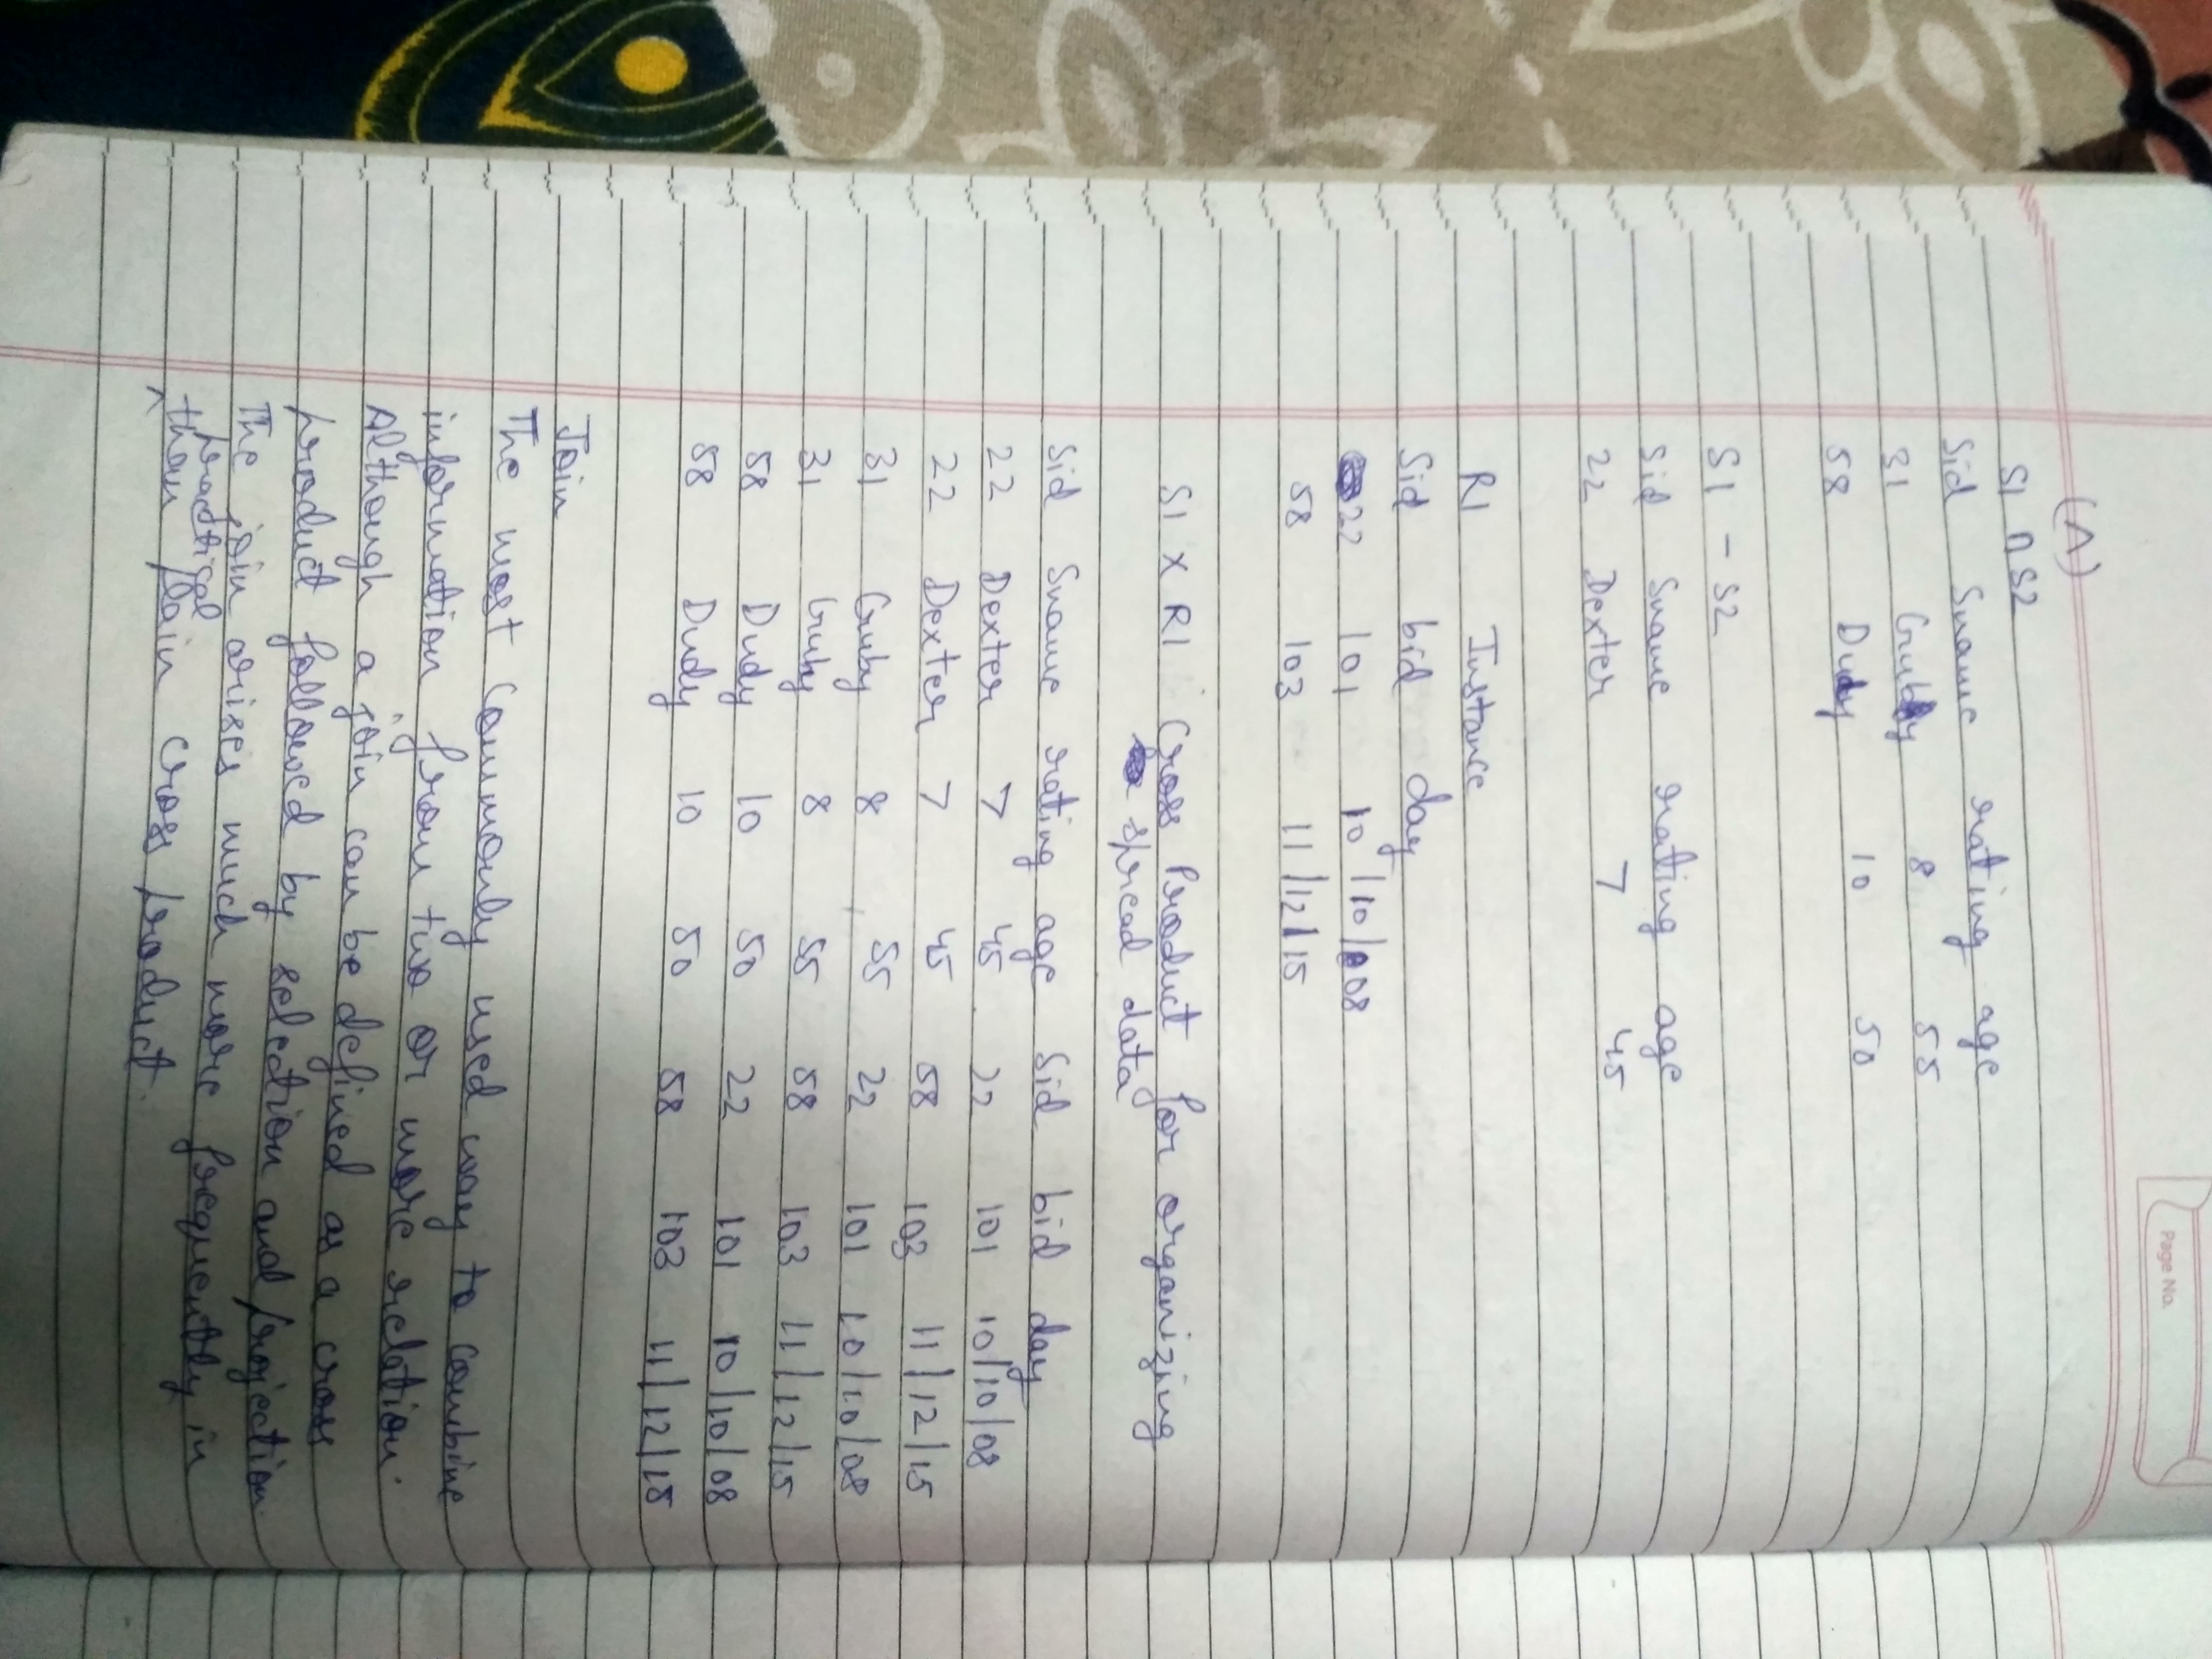 Page No.
(A)
S1 ∩ S2
Sid Sname rating age
31 Gruby 8 55
58 Dudy 10 50
S1 - S2
Sid Sname rating age
22 Dexter 7 45
R1 Instance
Sid bid day
22 101 10/10/08
58 103 11/12/15
S1 X R1 : Cross Product for organizing
spread data
Sid Sname rating age Sid bid day
22 Dexter 7 45 22 101 10/10/08
22 Dexter 7 45 58 103 11/12/15
31 Gruby 8 55 22 101 10/10/08
31 Gruby 8 55 58 103 11/12/15
58 Dudy 10 50 22 101 10/10/08
58 Dudy 10 50 58 103 11/12/15
Join
The most Commonly used way to combine
information from two or more relation.
Although a join can be defined as a cross
product followed by selection and projection.
The join arises much more frequently in
practical
than plain cross product.